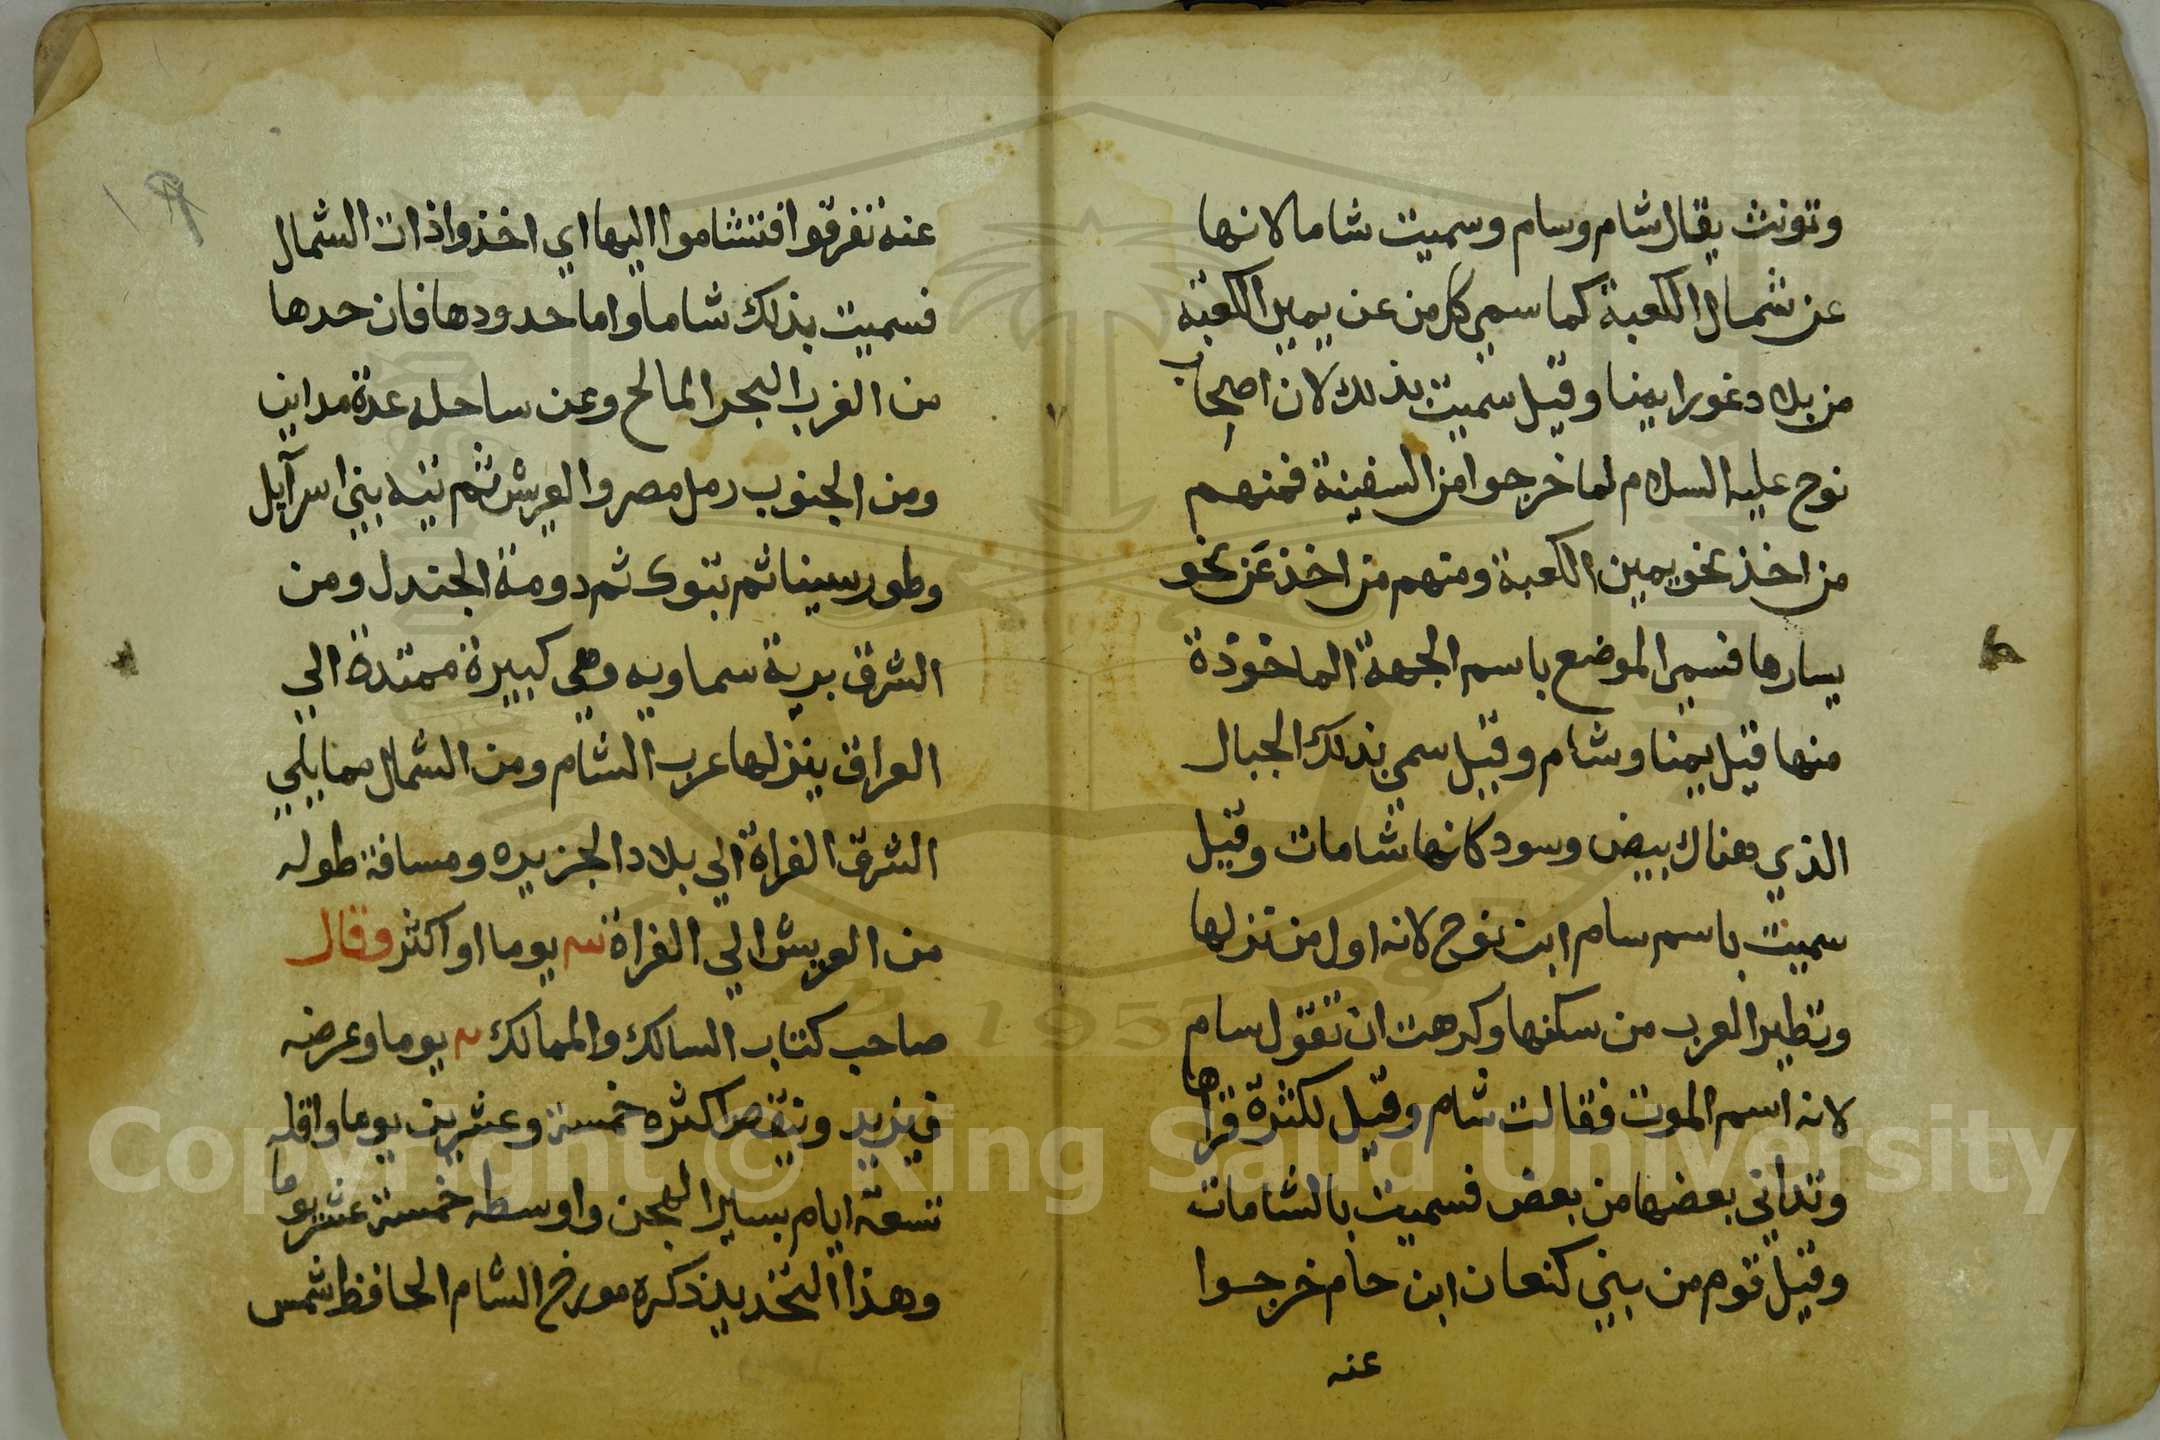 وتونث يقال شام وسام وسميت شاما لانها
عن شمال الكعبة كما سمي كل من عن يمين الكعبة
من بلاد غورا يمنا وقيل سميت بذلك لان اصحاب
نوح عليه السلام لما خرجوا من السفينة فمنهم
من اخذ نحو يمين الكعبة ومنهم من اخذ عن نحو
يسارها فسمي الموضع باسم الجهة الماخوذة
منها قيل يمنا وشام وقيل سمي بذلك الجبال
الذي هناك بيض وسود كانها شامات وقيل
سميت باسم سام ابن نوح لانه اول من نزلها
وتطير العرب من سكنها وكرهت ان تقول سام
لانه اسم الموت فقالت شام وقيل لكثرة قراها
وتداني بعضها من بعض فسميت بالشامات
وقيل قوم من بني كنعان ابن حام خرجوا
عنه
عنه تفرقوا فتشاموا اليها اي اخذوا ذات الشمال
فسميت بذلك شاما واما حدودها فان حدها
من الغرب البحر المالح وعن ساحله عدة مداين
ومن الجنوب رمل مصر والعريش ثم تيه بني اسرآيل
وطور سينا ثم تبوك ثم دومة الجندل ومن
الشرق برية سماويه وهي كبيرة ممتدة الي
العراق ينزلها عرب الشام ومن الشمال مما يلي
الشرق الفراة الي بلاد الجزيره ومسافة طوله
من العريش الي الفراة يوما او اكثر وقال
صاحب كتاب السالك والممالك يوما وعرضه
في يزيد وينقص اكثره خمسة وعشرين يوما واقله
تسعة ايام بسير الهجن واوسطه خمسة عشر يوما
وهذا التحديد ذكره مورخ الشام الحافظ شمس
Copyright © King Saud University
1957